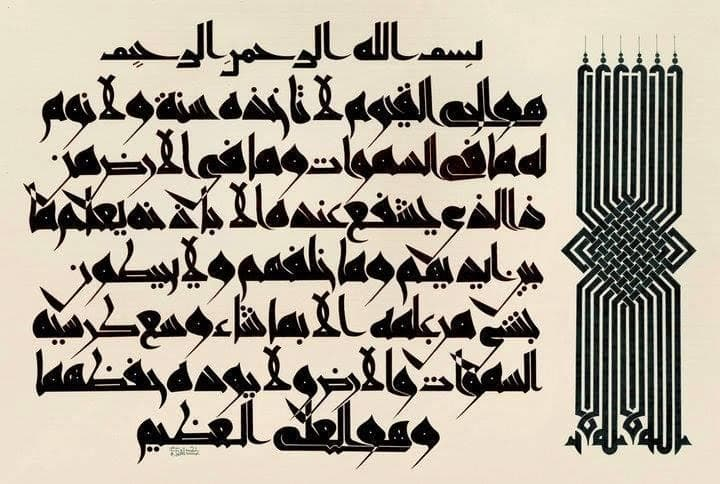 بسم الله الرحمن الرحيم
هو الحي القيوم لا تاخذه سنة ولا نوم
له ما في السموات وما في الارض من
ذا الذي يشفع عنده الا باذنه يعلم ما
بين ايديهم وما خلفهم ولا يحيطون
بشئ من علمه الا بما شاء وسع كرسيه
السموات والارض ولا يوده حفظهما
وهو العلي العظيم